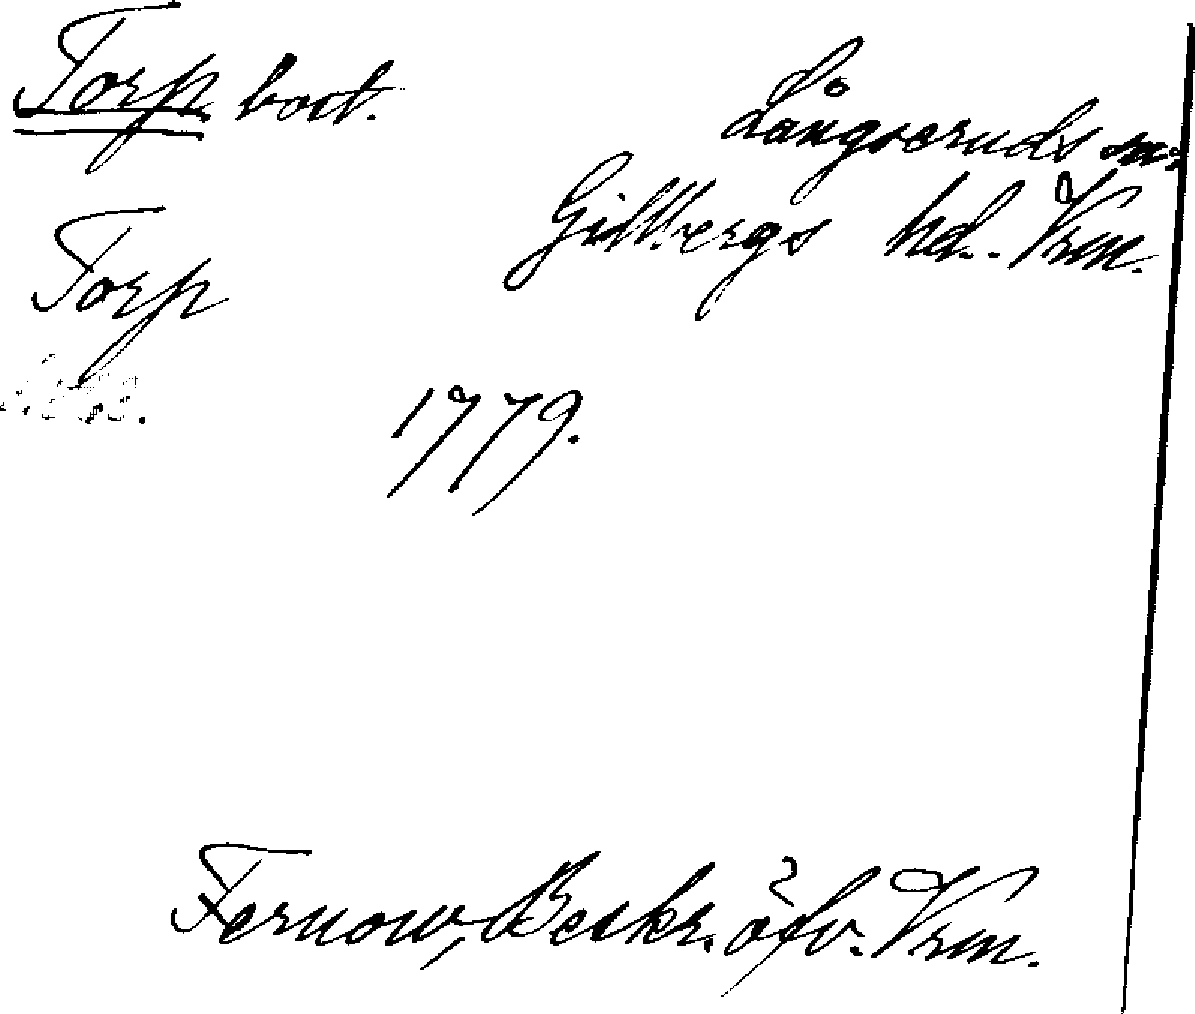 Torp bost.
Långseruds sn,
Gillbergs hd. Vrm.
Torp
1779.
Fernow, Beskr. öfv. Vrm.